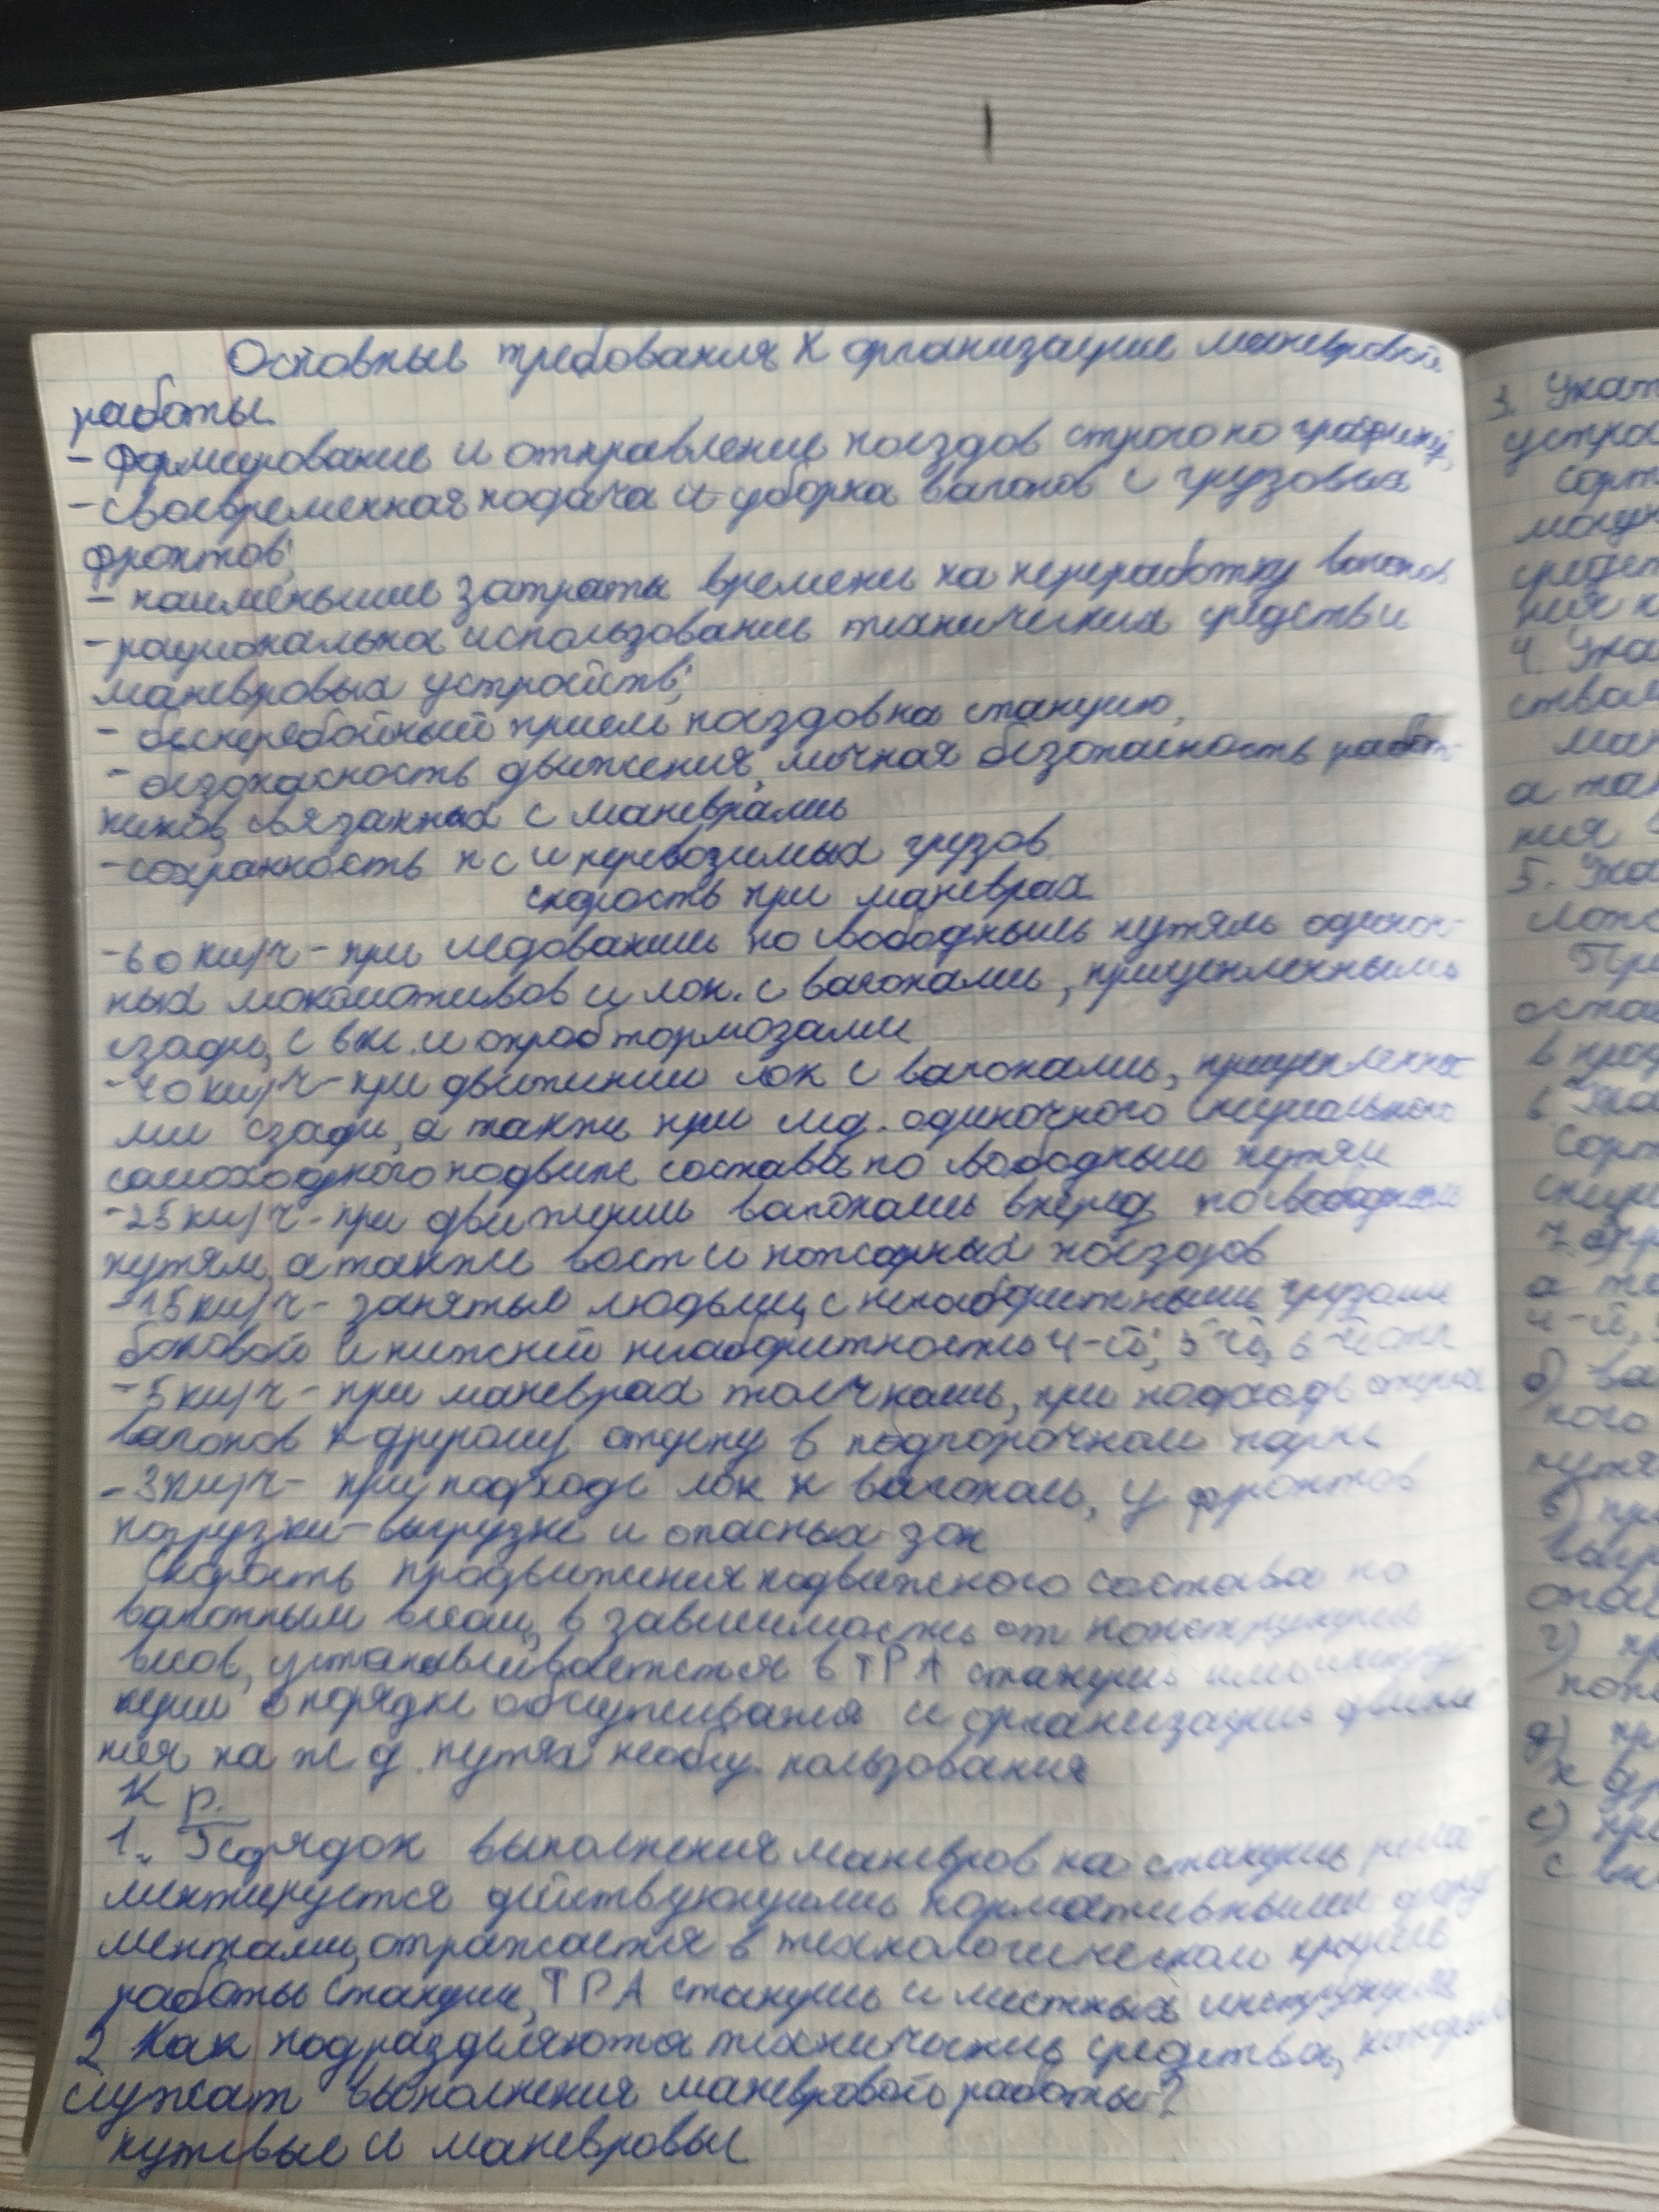 Основные требования к организации маневровой
работы.
- Формирование и отправление поездов строго по графику,
- своевременная подача и уборка вагонов с грузовых
фронтов;
- наименьшие затраты времени на переработку вагонов
- рациональна использование технических средств и
маневровых устройств;
- бесперебойный прием поездов на станцию,
- безопасность движения, личная безопасность работ-
ников, связанных с маневрами
- сохранность п с и перевозимых грузов
скорость при маневрах
- 60 км/ч - при следовании по свободным путям одиноч-
ных локомотивов и лок. с вагонами, прицепленными
сзади, с вкл. и опроб тормозами
- 40 км/ч - при движении лок с вагонами, прицепленны-
ми сзади, а также при след. одиночного специального
самоходного подвиж состава по свободным путям
- 25 км/ч - при движении вагонами вперед по свободным
путям, а также восст и пожарных поездов
- 15 км/ч - занятые людьми, с негабаритными грузами
боковой и нижней негабаритности 4-й, 5-й, 6-й степ
- 5 км/ч - при маневрах толчками, при подходе отцепа
вагонов к другому отцепу в подгорочном парке
- 3 км/ч - при подходе лок к вагонам, у фронтов
погрузки-выгрузке и опасных зон
Скорость продвижения подвижного состава по
вагонным весам, в зависимости от конструкции
весов, устанавливается в ТРА станции или инстру-
кции о порядке обслуживания и организации движе-
ния на ж д. путях необщ. пользования
К р.
1. Порядок выполнения маневров на станции регла-
ментируется действующими нормативными доку-
ментами, отражается в технологическом процессе
работы станции, ТРА станции и местных инструкциях
2 Как подразделяются технические средства, которые
служат выполнения маневровой работы?
путевые и маневровые
3. Указ
устро
Сорт
могут
средст
ния
4. Ука
ствам
ман
а так
ния
5. Ука
локо
При
оста
в про
6 Ука
Сорт
специ
а та
4-й,
б) ва
ного
путя
в) пр
г) пр
д) пр
к др
е) пр
с вк